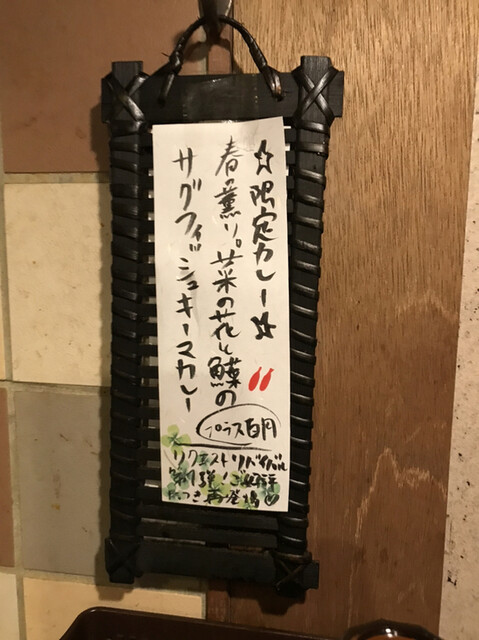 ☆限定カレー☆
春の薫り。菜の花と鰈の
サグフィッシュキーマカレー
プラス百円
リクエストリバイバル
第1弾!ご好評
につき再登場